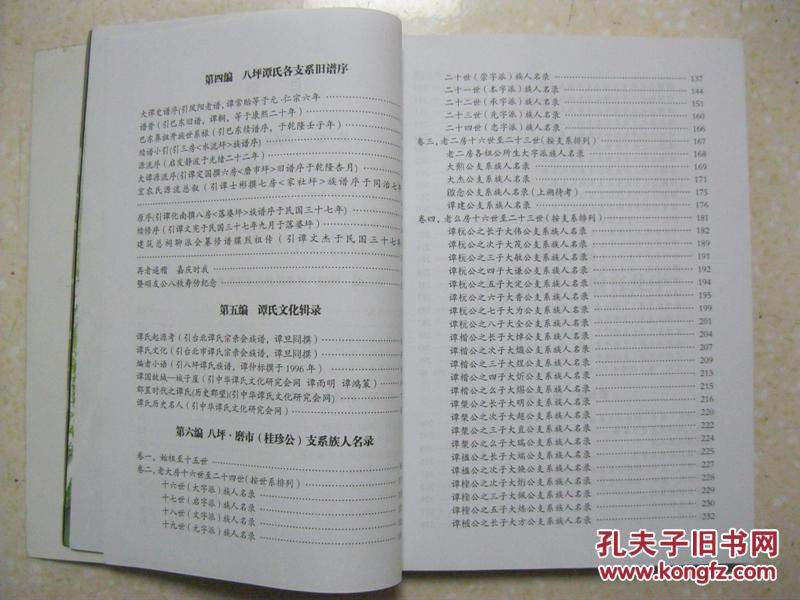 第四编 八坪谭氏各支系旧谱序
大谭史谱序(引凤阳老谱,谭常贻等于元·仁宗六年
谱晋(引巴东旧谱,谭桐,等于康熙二十年)
巴东恭租开族世系椽(引巴东续谱序,于乾隆壬子年)
续谱小引(引三房<水流坪>族谱序)
源流序(启发静波于光绪二十二年)
大谭源流序(谭定国撰六房<磨市坪>旧谱序于乾隆杏月)
宣农氏源流总叙(引谭士彬撰七房<家社坪>族谱序于同治七年
原序(引谭化南撰八房<落婆坪>族谱序于民国三十七年)
续修序(引谭文宪于民国三十七年九月于落婆坪)
建筑总祠聊派会纂修谱牒烈祖传(引谭文杰于民国三十七年
再者遥稽 嘉庆时我
暨顺友公八秩寿传纪念
第五编 谭氏文化辑录
谭氏起源考(引台北谭氏宗亲会族谱,谭旦冏撰)
谭氏文化(引台北市谭氏宗亲会族谱,谭旦冏撰)
编者小语(引八坪谭氏族谱,谭仲标撰于1996年)
谭国故城—城子崖(引中华谭氏文化研究会网 谭雨明 谭鸿策)
郡置时代之谭氏(历史郡望)(引中华谭氏文化研究会网)
谭氏历史名人(引中华谭氏文化研究会网)
第六编 八坪·磨市(桂珍公)支系族人名录
卷一,始祖至十五世
卷二,老大房十六世至二十四世(按世系排列)
十六世(大字派)族人名录
十七世(启字派)族人名录
十八世(文字派)族人名录
十九世(光字派)族人名录
二十世(崇字派)族人名录 137
二十一世(本字派)族人名录 144
二十二世(永字派)族人名录 151
二十三世(先字派)族人名录 160
二十四世(志字派)族人名录 166
卷三,老二房十六世至二十三世(按支系排列) 167
老二房各祖公所生大字派族人名录 168
大勲公支系族人名录 171
大杰公支系族人名录 171
啟念公支系族人名录(上溯待考) 175
谭建公支系族人名录 176
卷四,老幺房十六世至二十三世(按支系排列) 181
谭杭公之长子大伟公支系族人名录 182
谭杭公之次子大茂公支系族人名录 189
谭杭公之三子大敏公支系族人名录 191
谭杭公之四子大谦公支系族人名录 192
谭杭公之五子大定公支系族人名录 194
谭杭公之六子大香公支系族人名录 196
谭杭公之七子大方公支系族人名录 197
谭杭公之八子大全公支系族人名录 201
谭楷公之长子大焯公支系族人名录 204
谭楷公之次子大爔公支系族人名录 207
谭楷公之三子大煜公支系族人名录 209
谭楷公之四子大炘公支系族人名录 213
谭楷公之幺子大焬公支系族人名录 216
谭榘公之长子大明公支系族人名录 215
谭榘公之次子大超公支系族人名录 220
谭榘公之三子大直公支系族人名录 222
谭榘公之幺子大瑞公支系族人名录 222
谭榲公之长子大端公支系族人名录 224
谭榲公之次子大焕公支系族人名录 226
谭橦公之次子大衍公支系族人名录 227
谭橦公之三子大佩公支系族人名录 229
谭橦公之五子大炼公支系族人名录 230
谭械公之长子大方公支系族人名录 232
孔夫子旧书网
www.kongfz.com